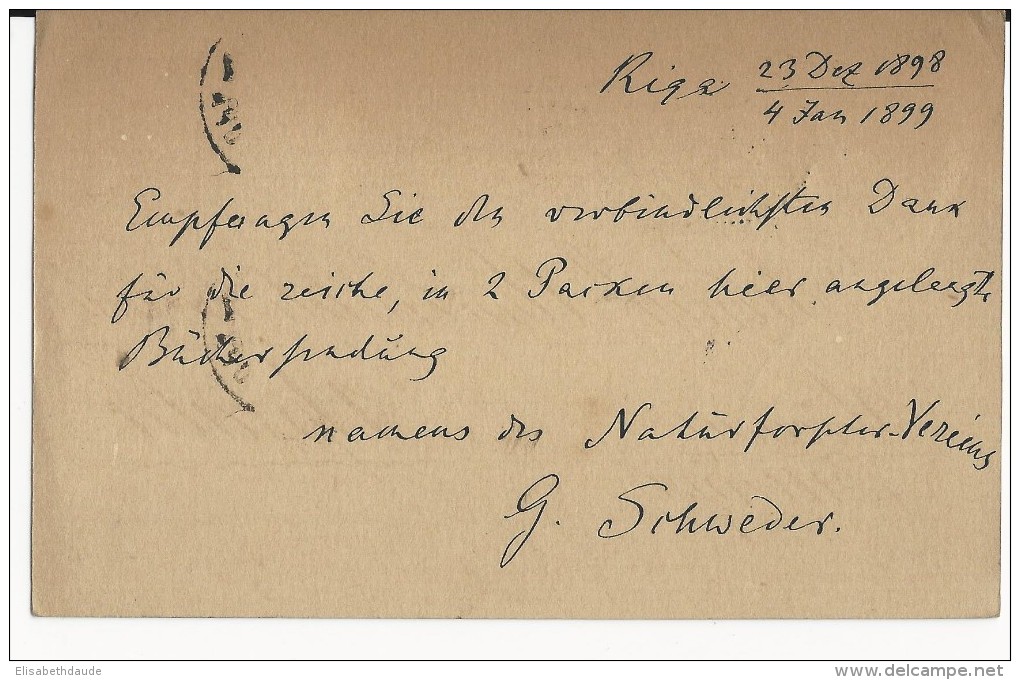 Riga 23 Dez 1898
4 Jan 1899
Empfangen Sie den verbindlichsten Dank
für die reiche, in 2 Packen hier angelangte
Büchersendung
namens des Naturforscher-Vereins
G. Schweder.
Elisabethdaude
www.delcampe.net